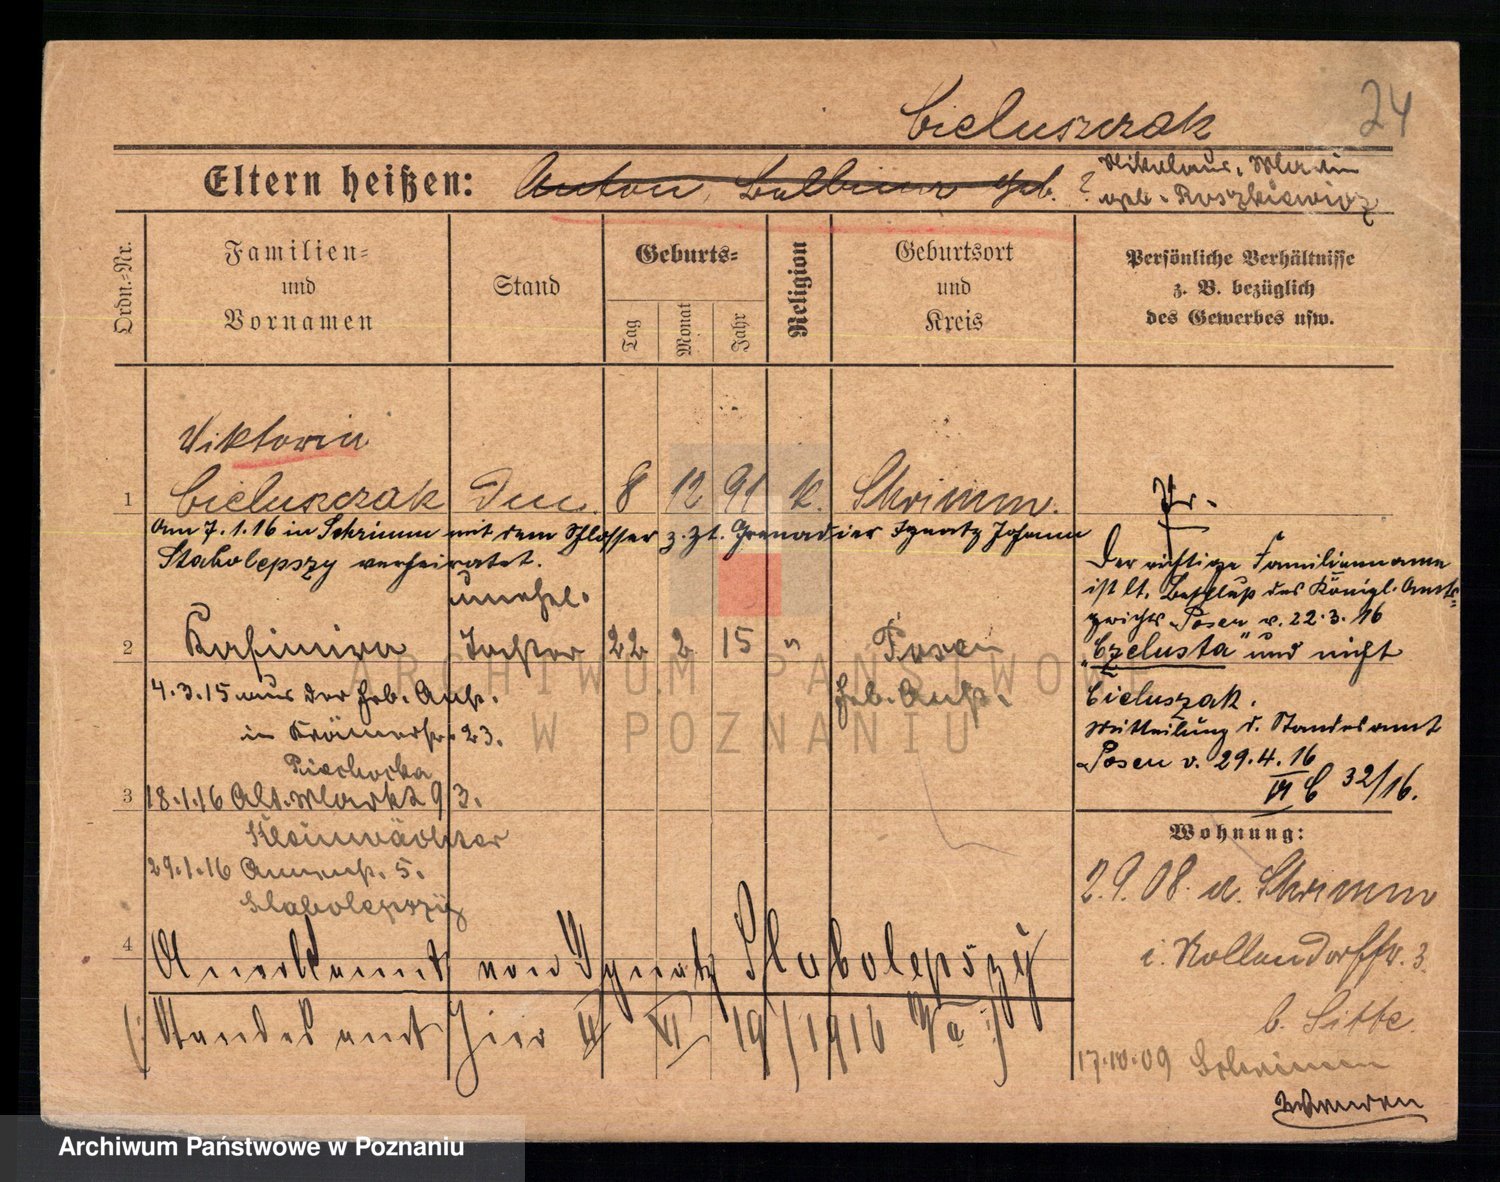 24
Cieluszczak
Eltern heißen: Anton, Balbina geb. ? Nikolaus, Maria
geb. Roszkiewicz
Ordn.-Nr.
Familien-
und
Vornamen
Stand
Geburts-
Tag
Monat
Jahr
Religion
Geburtsort
und
Kreis
Persönliche Verhältnisse
z. B. bezüglich
des Gewerbes usw.
Viktoria
1 Cieluszczak 8 12 91 k. Schrimm.
Am 7.1.16 in Schrimm mit dem Schlosser z. Zt. Grenadier Ignatz Johann
Stabolepszy verheiratet.
unehel.
2 Kasimira Tochter 22 2 15 " Posen
4.3.15 aus der Heb. Anst. Heb. Anst.
in Krämerstr. 23.
Piechocka
3 18.1.16 Alt. Markt 93.
Kleinwächter
29.1.16 5.
Slabolepszy
4 Anerkannt von Ignatz Slabolepszy
(Standesamt hier II VI 19/1916 )
Der richtige Familienname
ist lt. Beschluß des Königl. Amts-
gerichts Posen v. 22.3.16
"Czelusta" und nicht
Cieluszak.
Mitteilung d. Standesamt
Posen v. 29.4.16
VI C 32/16.
Wohnung:
2.9.08. a. Schrimm
i. Kollendorffstr. 3.
b. Sitte.
17.10.09 Schrimm
ARCHIWUM PAŃSTWOWE
W POZNANIU
Archiwum Państwowe w Poznaniu